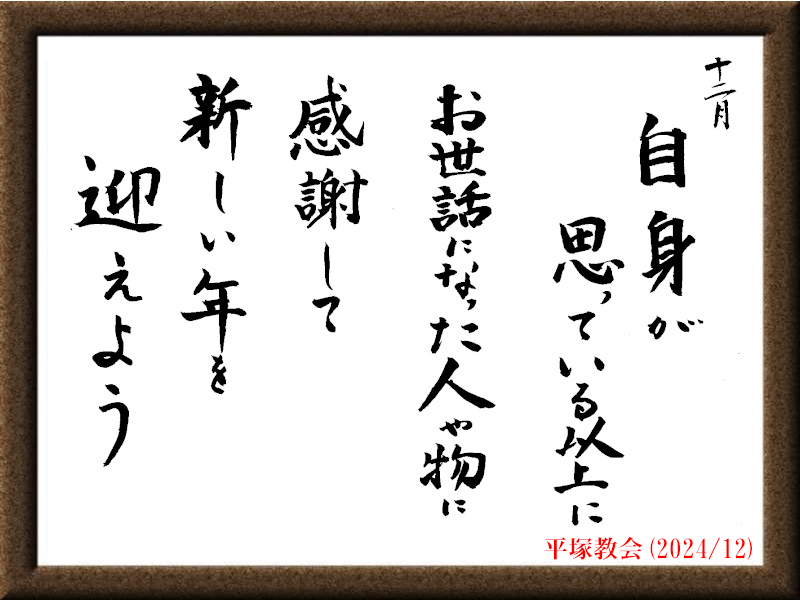 十二月
自身が
思っている以上に
お世話になった人や物に
感謝して
新しい年を
迎えよう
平塚教会(2024/12)